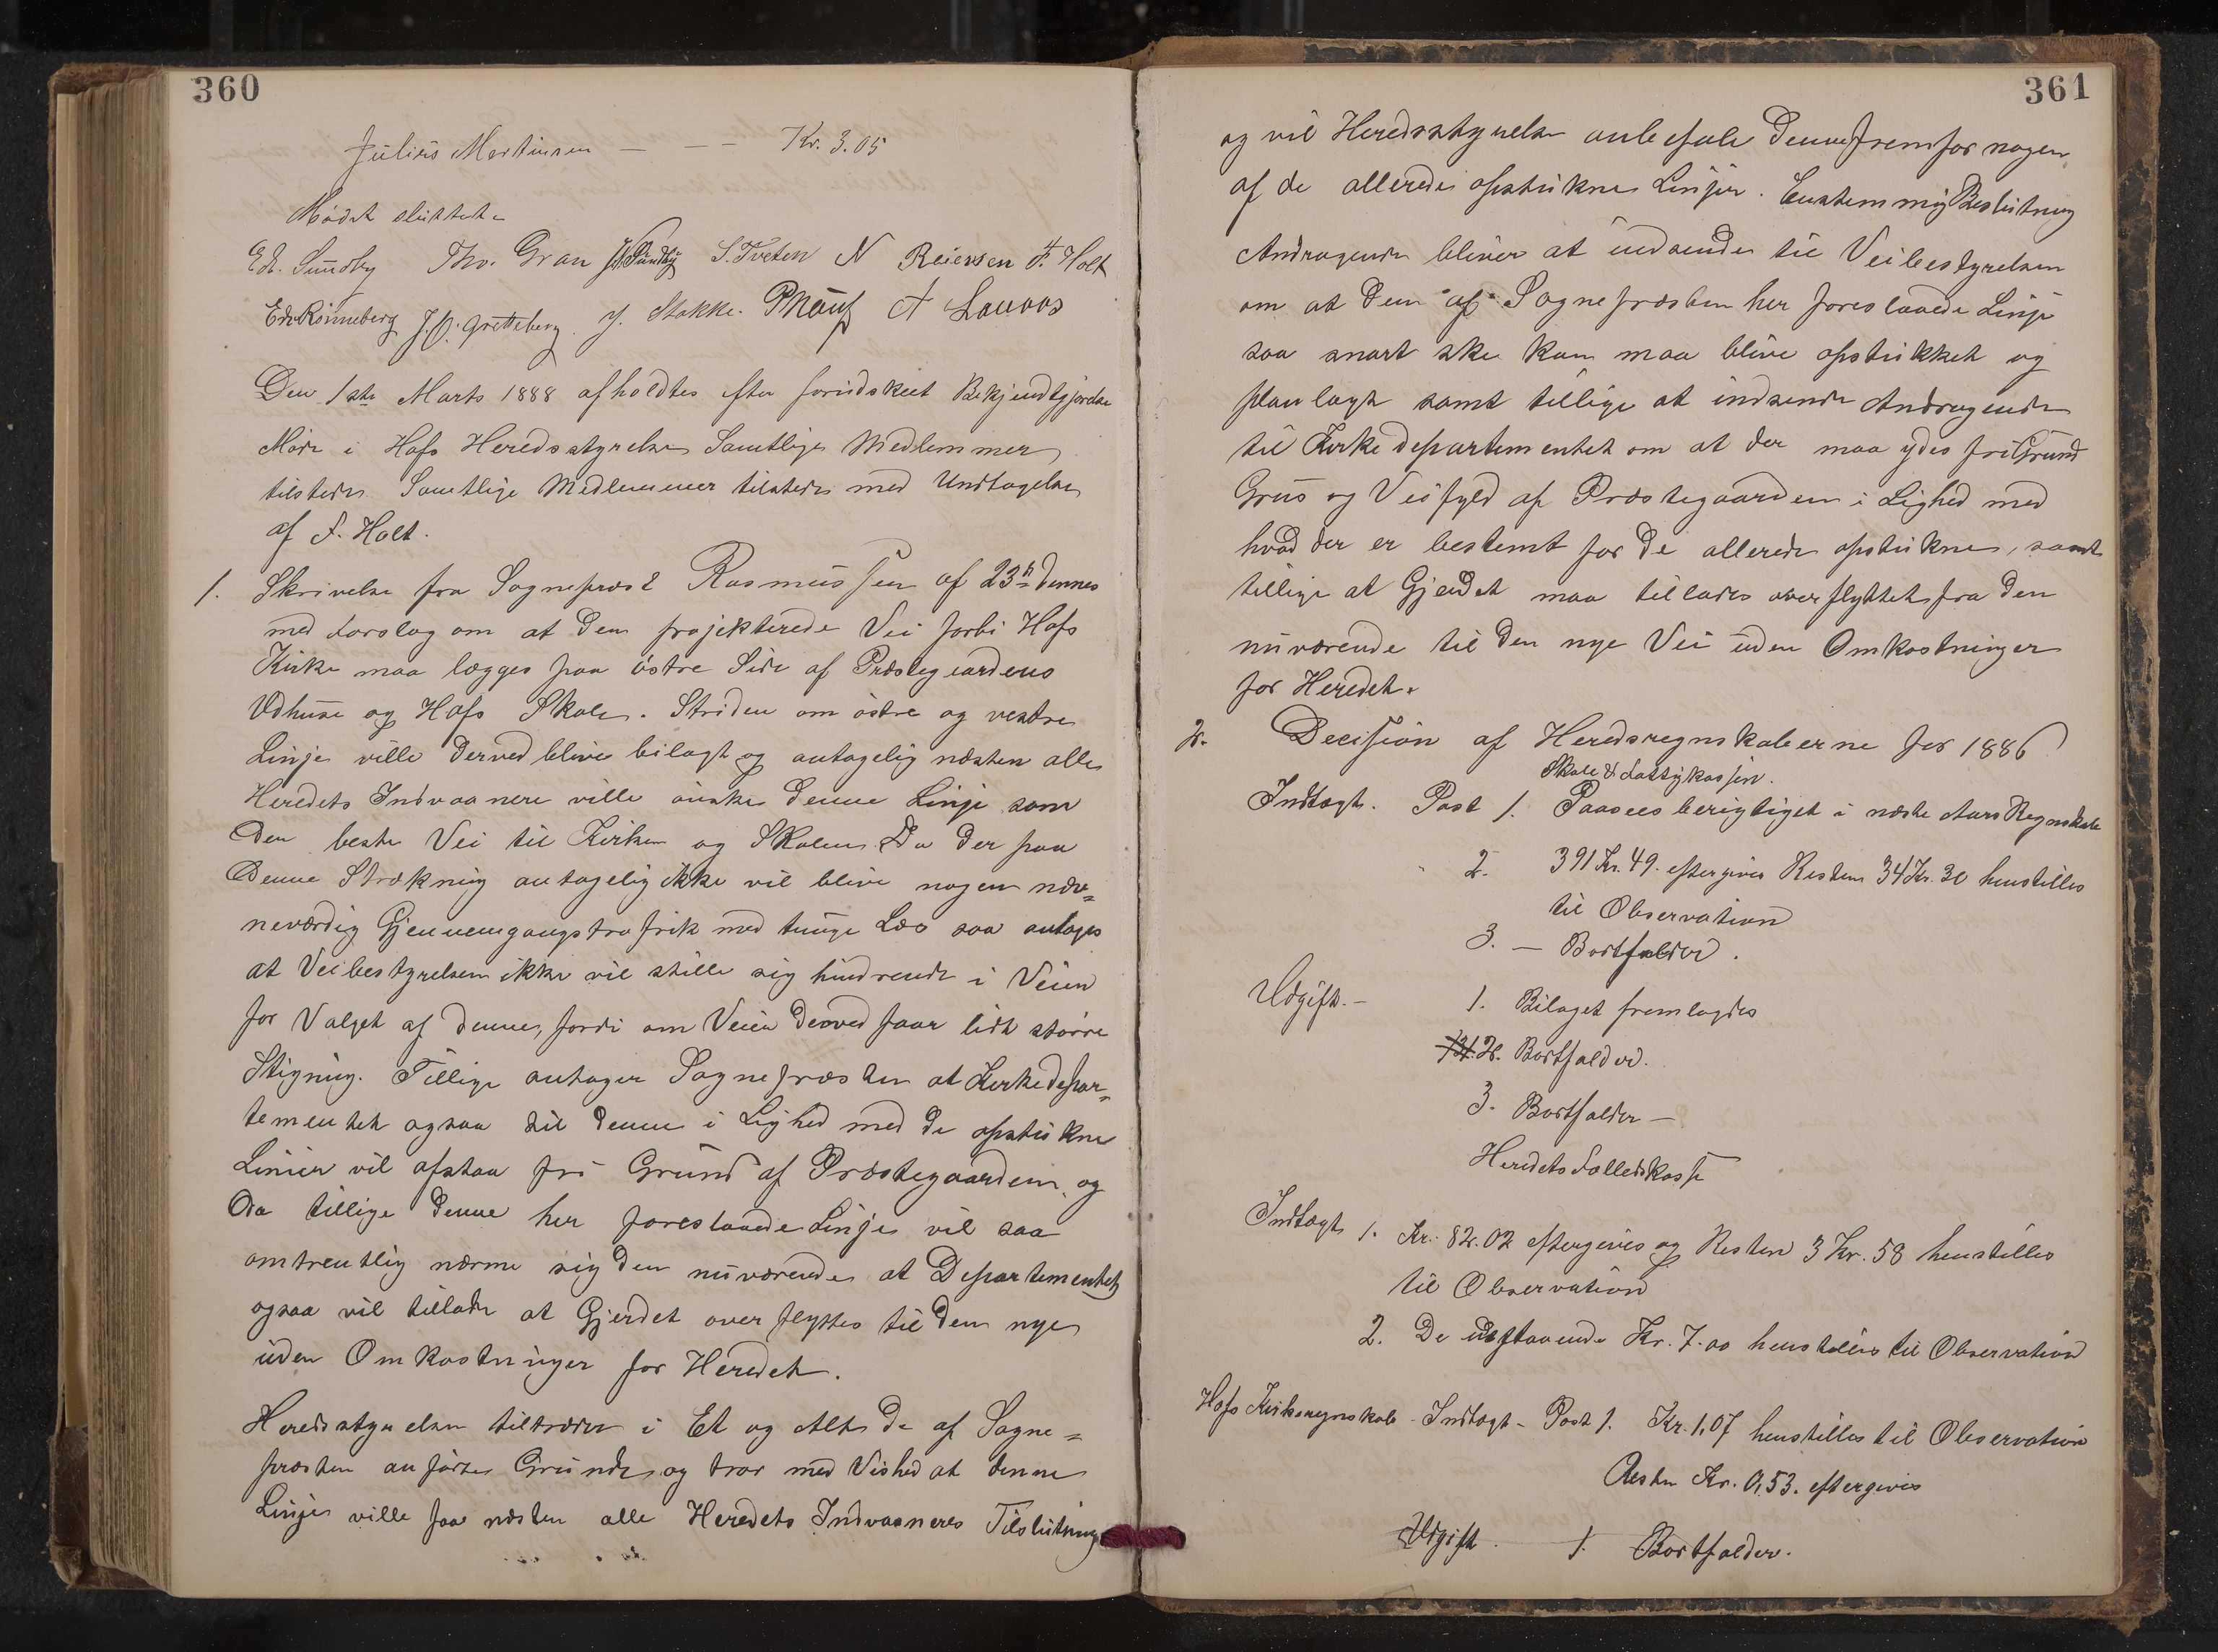 360
Julius Martinsen — — — Kr. 3.05
Mødet sluttet.
Edv. Sundby Tho. Gran S. Tveten N Reiersen F. Holt
Edv Rönneberg J. O. Gretteberg. J. Stokke. A Lauvos
Den 1ste Marts 1888 afholdtes efter forudskeet Bekjendtgjørelse
Møde i Hofs Heredsstyrelse Samtlige Medlemmer
tilstede. Samtlige Medlemmer tilstede med Undtagelse
af F. Holt.
1. Skrivelse fra Sogneprest Rasmussen af 23de dennes
med Forslag om at den projekterede Vei forbi Hofs
Kirke maa lægges paa østre Side af Præstegaardens
Udhuse og Hofs Skole. Striden om østre og vestre
Linje ville derved blive bilagt og antagelig næsten alle
Heredets Indvaanere ville ønske denne Linje som
den beste Vei til Kirken og Skolen. Da der paa
denne Strækning antagelig ikke vil blive nogen næv-
neværdig Gjennemgangstrafik med tunge Læs saa antages
at Veibestyrelsen ikke vil stille sig hindrende i Veien
for Valget af denne, fordi om Veien derved faar lidt større
Stigning. Tillige antager Sognepræsten at Kirkedepar-
tementet ogsaa til denne i Lighed med de opstukne
Linier vil afstaa fri Grund af Præstegaarden, og
da tillige denne her foreslaaede Linje vil saa
omtrentlig nærme sig den nuværende at Departementet
ogsaa vil tillade at Gjerdet overflyttes til den nye
uden Omkostninger for Heredet.
Heredsstyrelsen tiltræder i Et og Alt de af Sogne-
præsten anførte Grunde og tror med Vished at denne
Linje ville faa næsten alle Heredets Indvaaneres Tilslutning
361
og vil Heredsstyrelsen anbefale denne fremfor nogen
af de allerede opstukne Linjer. Enstemmig Beslutning
Andragende bliver at indsende til Veibestyrelsen
om at den af Sognepræsten her foreslaaede Linje
saa snart ske kan maa blive opstukket og
planlagt samt tillige at indsende Andragende
til Kirkedepartementet om at der maa ydes fri Grund
Grus og Veifyld af Præstegaarden i Lighed med
hvad der er bestemt for de allerede opstukne, samt
tillige at Gjerdet maa tillades overflyttet fra den
nuværende til den nye Vei uden Omkostninger
for Heredet.
2. Decision af Heredsregnskaberne for 1886
Skole & Fattigkassen.
Indtægt. Post 1. Paasees berigtiget i næste Aars Regnskab
2. 391 Kr. 49. eftergives Resten 34 Kr. 30 henstilles
til Observation
3. — Bortfalder.
Udgift. — 1. Bilaget fremlagdes
2. Bortfalder.
3. Bortfalder —
Heredets Fælledskasse
Indtægt 1. Kr. 82.02 eftergives og Resten 3 Kr. 58 henstilles
til Observation
2. De udestaaende Kr. 7.00 henstilles til Observation
Hofs Kirkeregnskab - Indtægt - Post 1. Kr. 1,07 henstilles til Observation
Resten Kr. 0,53. eftergives
Udgift. 1. Bortfalder.